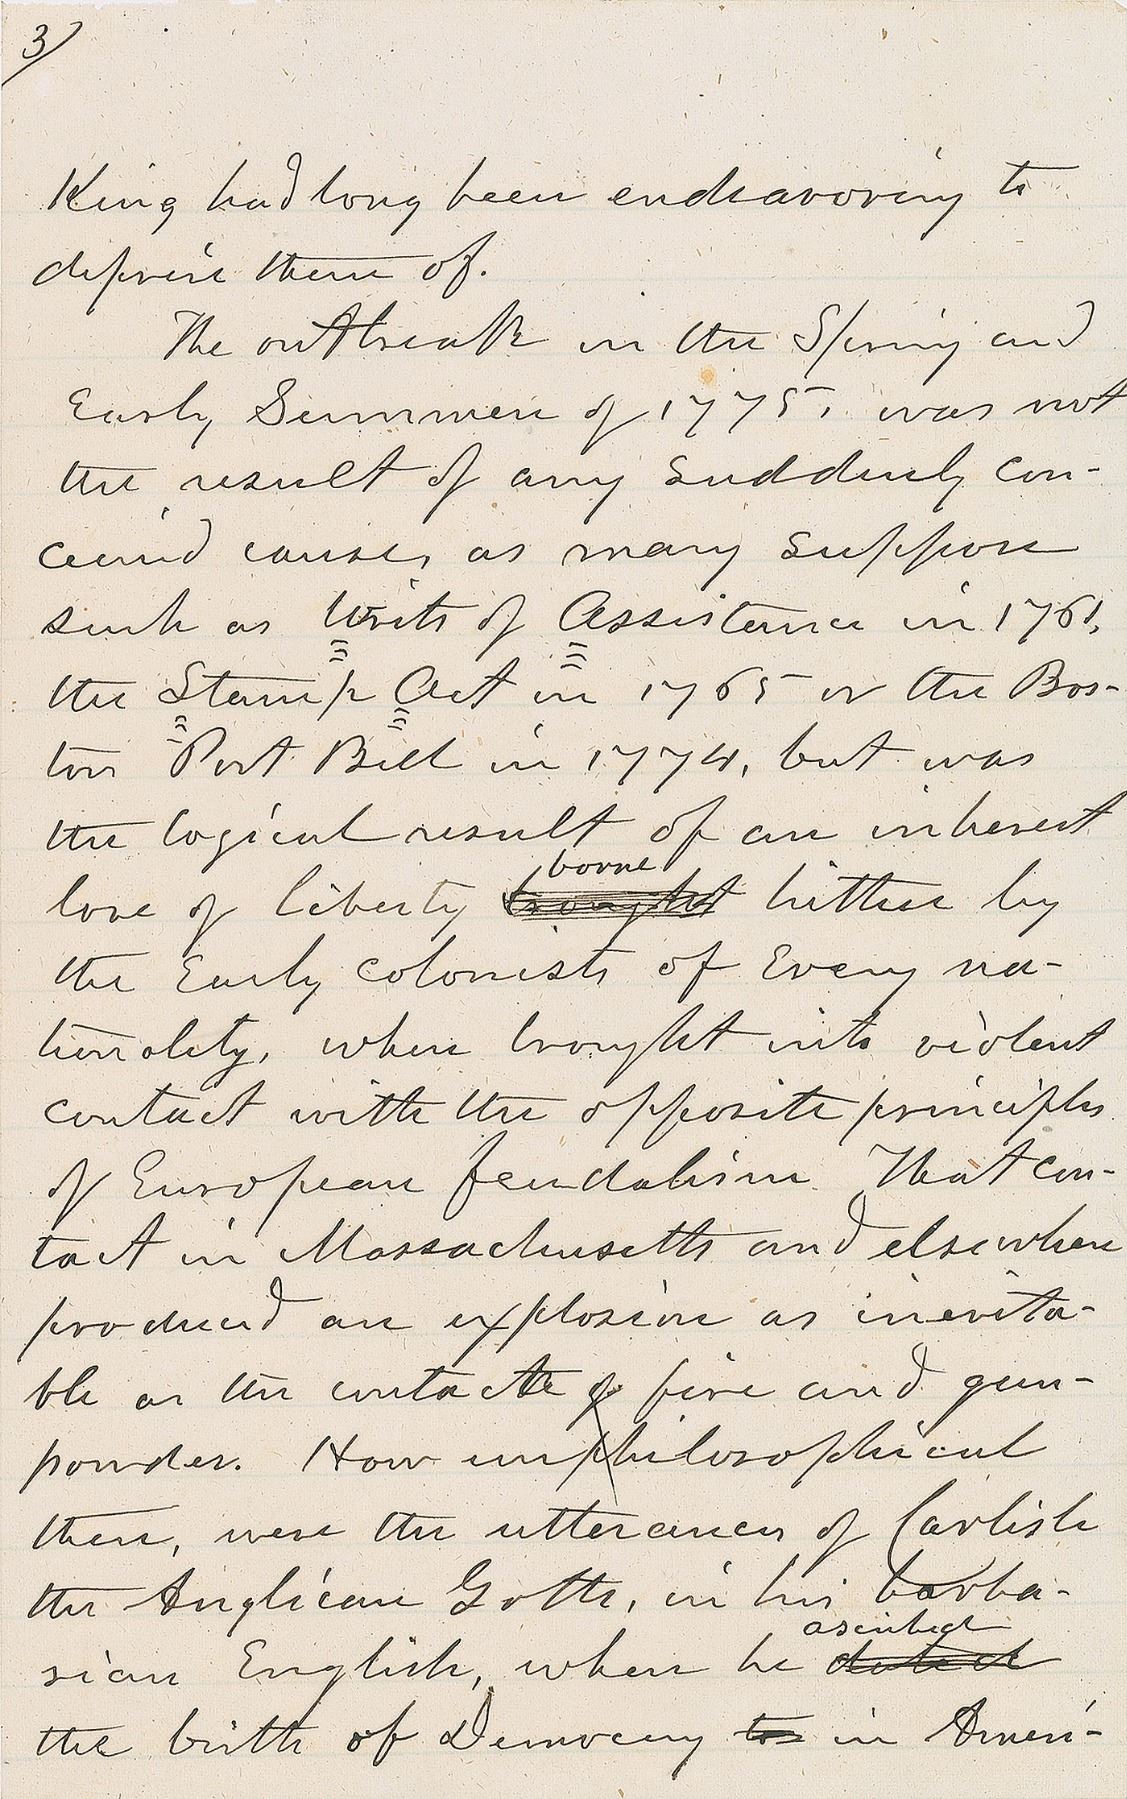 3/
King had long been endeavoring to
deprive them of.
The outbreak in the Spring and
Early Summer of 1775, was not
the result of any suddenly con-
ceived causes, as many suppose
such as Writs of Assistance in 1761,
the Stamp Act in 1765 or the Bos-
ton Port Bill in 1774, but was
the logical result of an inherent
borne
love of liberty brought hither by
the Early colonists of Every na-
tionality, when brought into violent
contact with the opposite principles
of European feudalism. That con-
tact in Massachusetts and elsewhere
produced an explosion as inevita-
ble as the contacte of fire and gun-
powder. How unphilosophical
then, were the utterances of Carlisle
the Anglican Goth, in his barba-
rian English, when he dated
ascribed
the birth of Democracy to in Ameri-